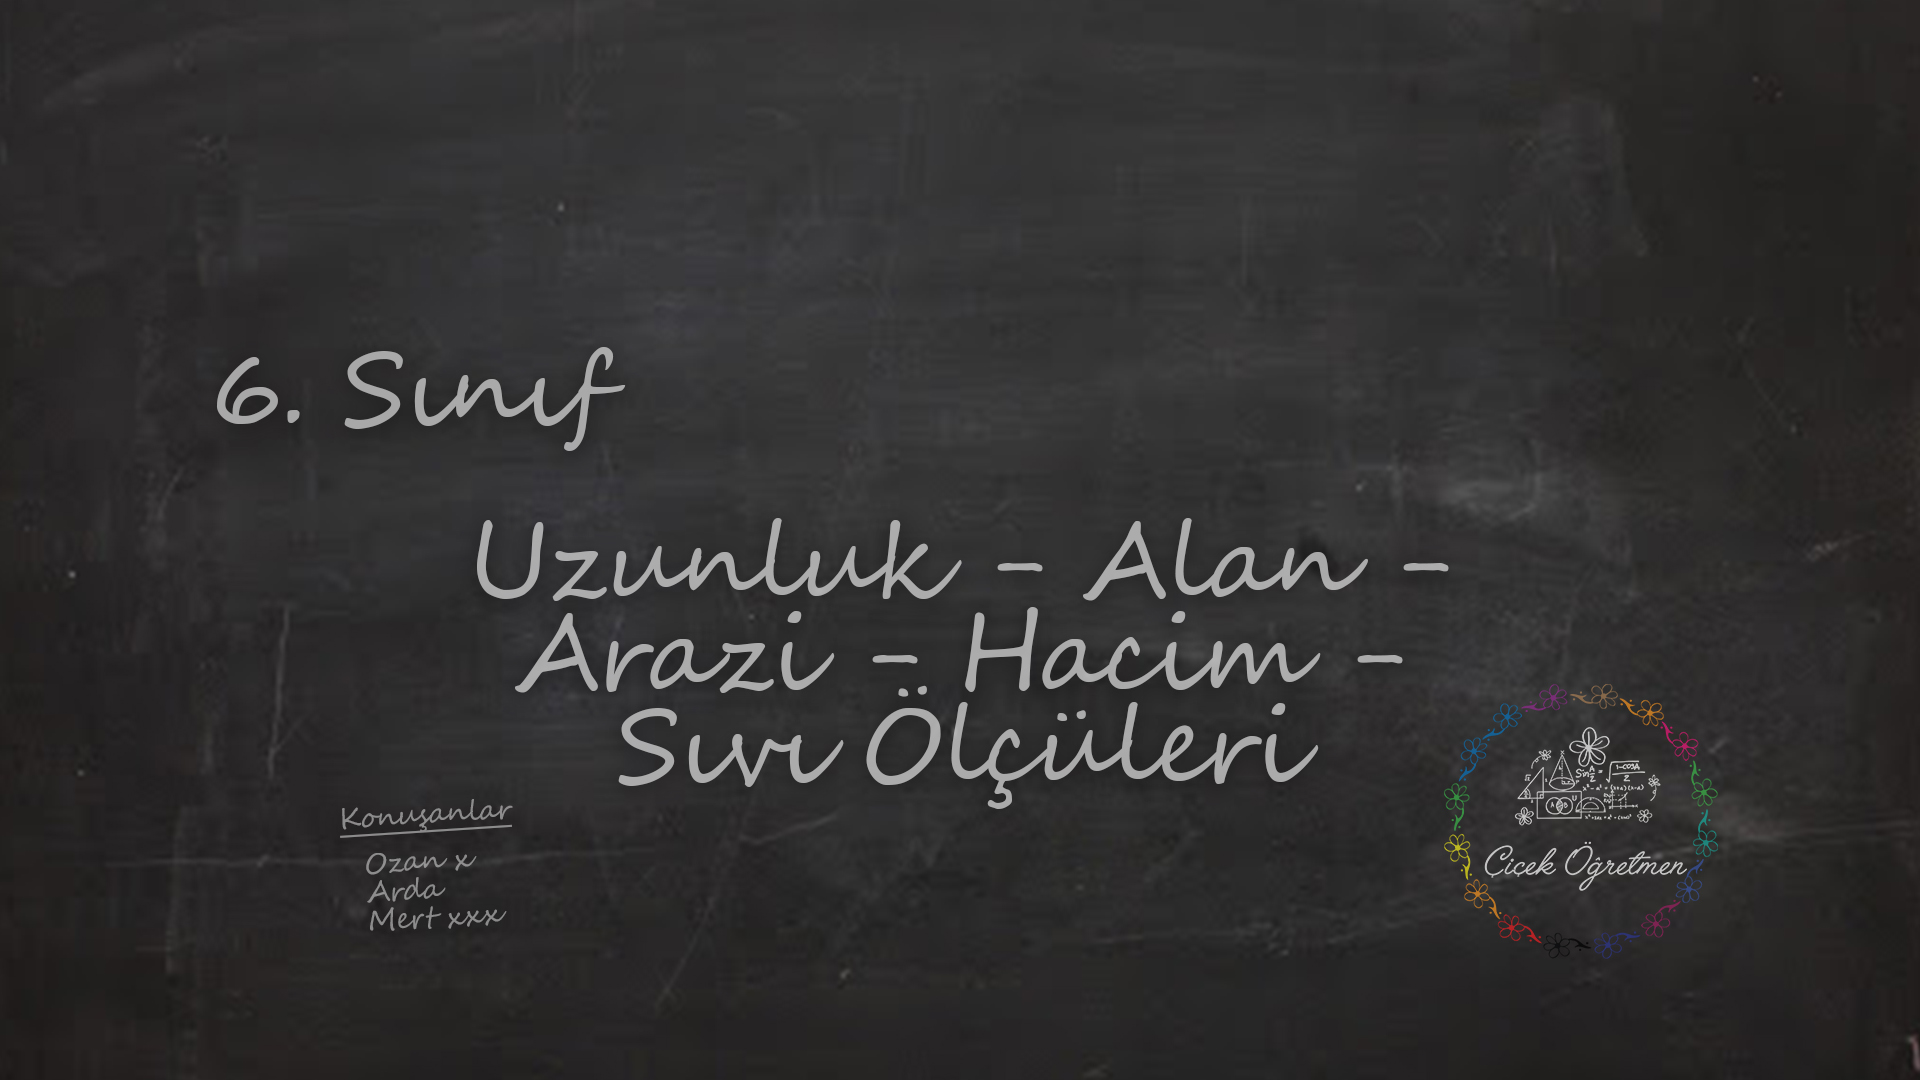 6. Sınıf
Uzunluk - Alan -
Arazi - Hacim -
Sıvı Ölçüleri
Konuşanlar
Ozan x
Arda
Mert xxx
Çiçek Öğretmen